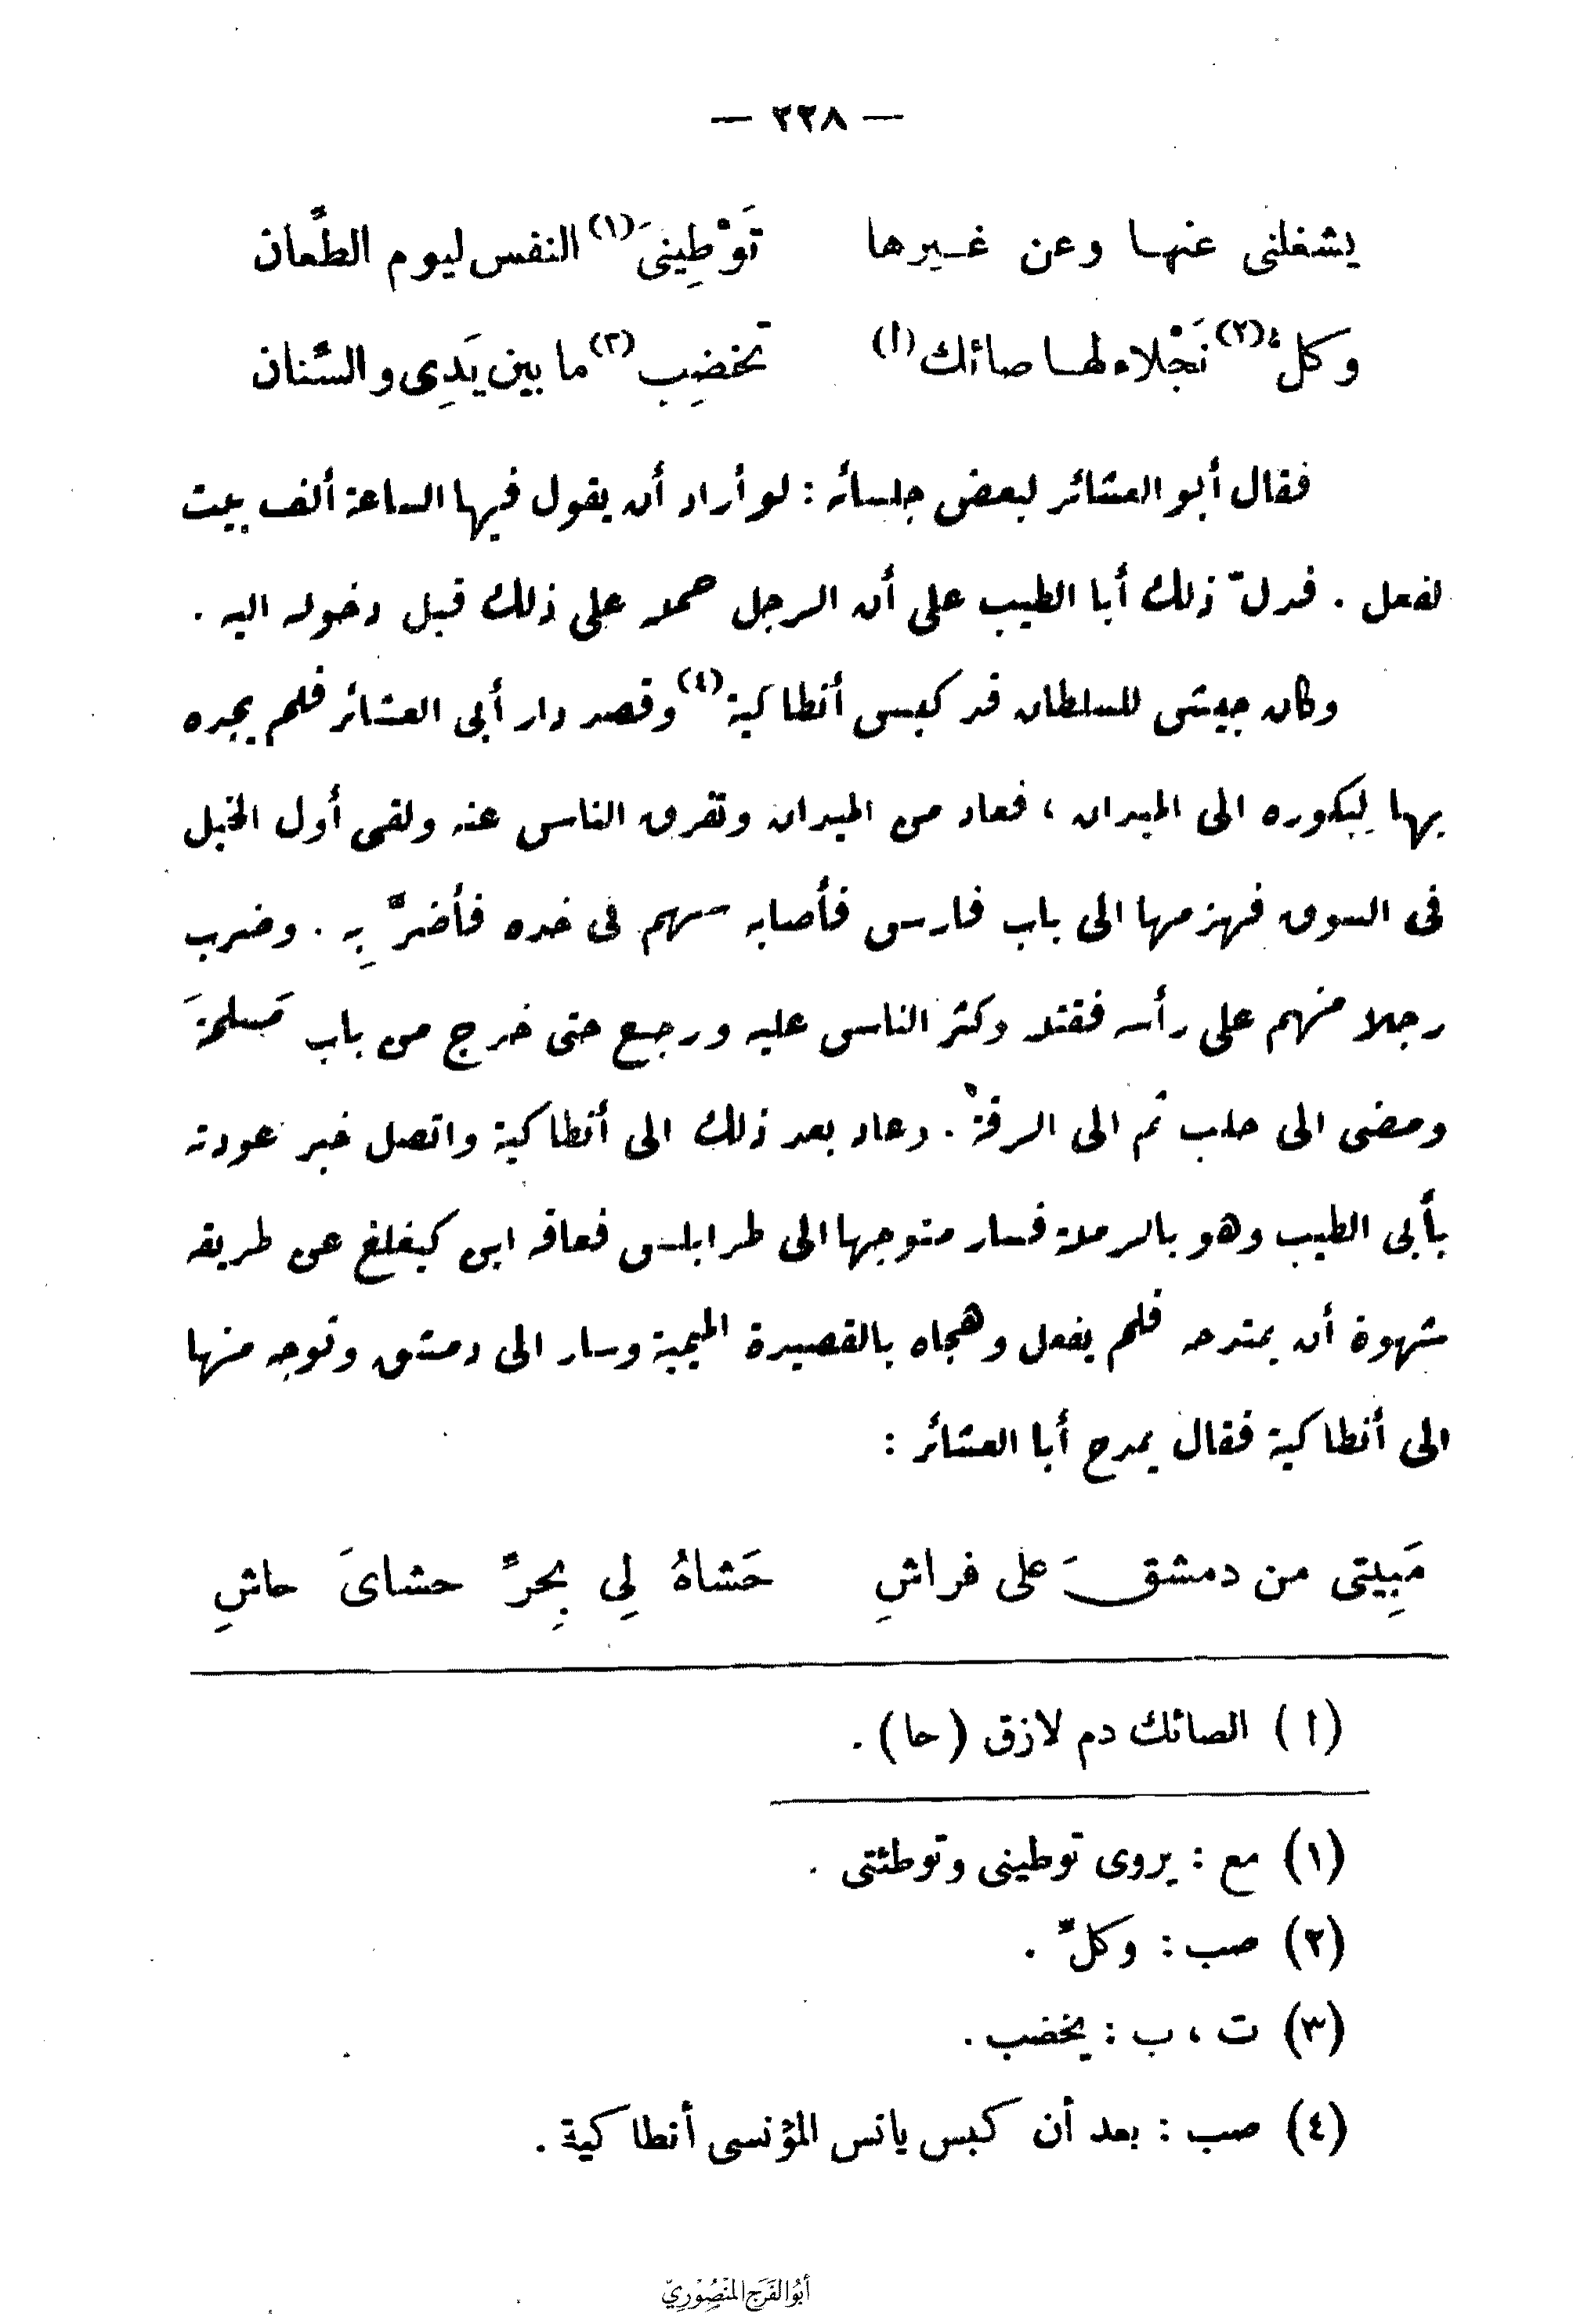 — ٢٢٨ —
يشغلنى عنها وعن غيرها تَوْطِينىَ (١) النفس ليوم الطِّعان
وكلِّ (٢) نَجْلاء لها صائك (ا) تخضِب (٣) ما بين يَدِى والسِّنان
فقال أبو العشائر لبعض جلسائه : لو أراد أن يقول فيها الساعة ألف بيت
لفعل . فدلّ ذلك أبا الطيب على أن الرجل حمله على ذلك قبل دخوله اليه .
وكان جيش للسلطان قد كبس أنطاكية (٤) وقصد دار أبى العشائر فلم يجده
بها لِبكوره الى الميدان ، فعاد من الميدان وتفرق الناس عنه ولقى أول الخيل
فى السوق فهزمها الى باب فارس فأصابه سهم فى خده فأضرَّ بِه . وضرب
رجلا منهم على رأسه فقتله وكثر الناس عليه ورجع حتى خرج من باب مَسلمةَ
ومضى الى حلب ثم الى الرقة . وعاد بعد ذلك الى أنطاكية واتصل خبر عودته
بأبى الطيب وهو بالرملة فسار متوجها الى طرابلس فعاقه ابن كيغلغ عن طريقه
شهوة أن يمتدحه فلم يفعل وهجاه بالقصيدة الميمية وسار الى دمشق وتوجه منها
الى أنطاكية فقال يمدح أبا العشائر :
مَبِيتى من دمشقَ على فراشِ حَشاهُ لِي بِحرِّ حشاىَ حاشِ
(ا) الصائك دم لازق (حا) .
(١) مع : يروى توطينى وتوطئتى .
(٢) صب : وكلٌّ .
(٣) ت ، ب : يخضب .
(٤) صب : بعد أن كبس يانس المؤنسى أنطاكية .
أبُو الفَرَج المَنصُوريّ